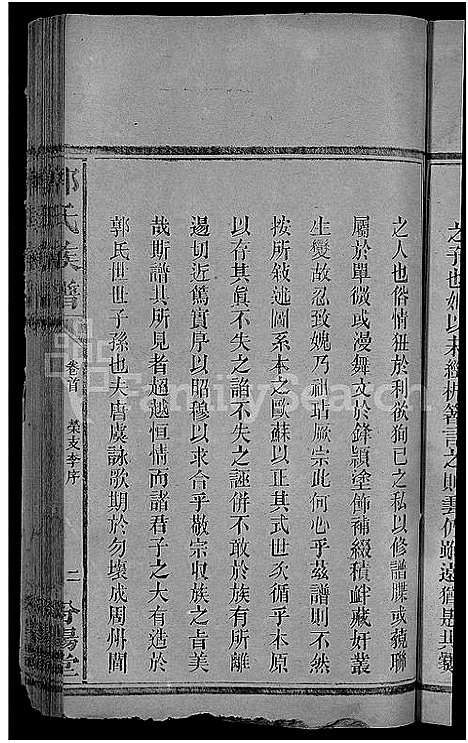 之人也俗情狃於利欲狥己之私以修譜牒或藐聯
屬於單微或漫舞文於鋒頴塗飾補綴積衅藏奸叢
生變故忍致媿乃祖玷厥宗此何心乎茲譜則不然
按所敍述圖系本之歐蘇以正其式世次循乎本原
以存其眞不失之諂不失之誣併不敢於族有所離
逷切近篤實厚以昭穆以求合乎敬宗収族之旨美
哉斯譜其所見者超越恒情而諸君子之大有造於
郭氏世世子孫也夫唐虞詠歌期於勿壞成周州閭
郭氏族譜
卷首
榮支李序
二
汾陽堂
FamilySearch